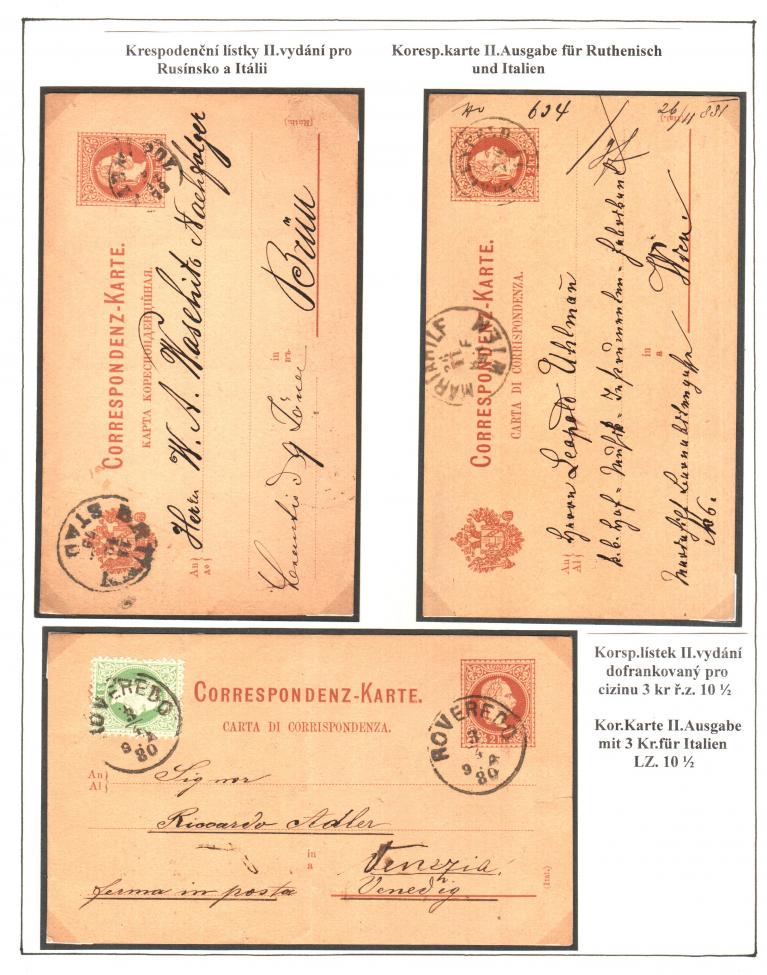 Krespodenční lístky II.vydání pro
Rusínsko a Itálii
Koresp.karte II.Ausgabe für Ruthenisch
und Italien
(Ruth.)
CORRESPONDENZ-KARTE.
КАРТА КОРЕСПОНДЕНЦІЙНАЯ.
An
До
Herrn W. A. Waschitz Nachfolger
in
въ
Brünn
STADT
No 634
26/11 881
(Ital.)
2 Kr.
CORRESPONDENZ-KARTE.
CARTA DI CORRISPONDENZA.
MARIAHILF
WIEN
An
Al
Herrn Leopold Uhlmann
k.k. Hof-Musik-Instrumenten-Fabrikant
in
a
Wien
No 6.
Korsp.lístek II.vydání
dofrankovaný pro
cizinu 3 kr ř.z. 10 ½
Kor.Karte II.Ausgabe
mit 3 Kr.für Italien
LZ. 10 ½
CORRESPONDENZ-KARTE.
CARTA DI CORRISPONDENZA.
2 Kr.
ROVEREDO
3/4
80
ROVEREDO
3/4
80
An
Al
Signor
Riccardo Adler
in
a
Venezia.
Venedig.
ferma in posta
(Ital.)